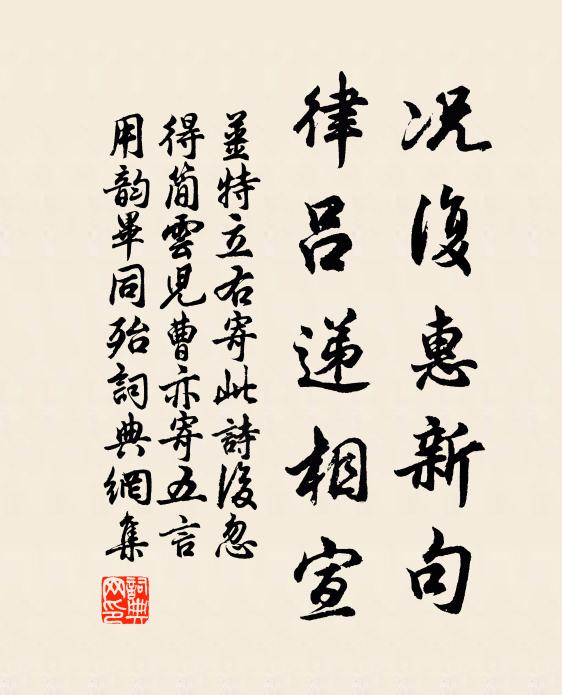 况復惠新句
律呂递相宣
薑特立右寄此詩後忽
得簡雲兒曹亦寄五言
用韵畢同殆詞典網集
詞典
网印